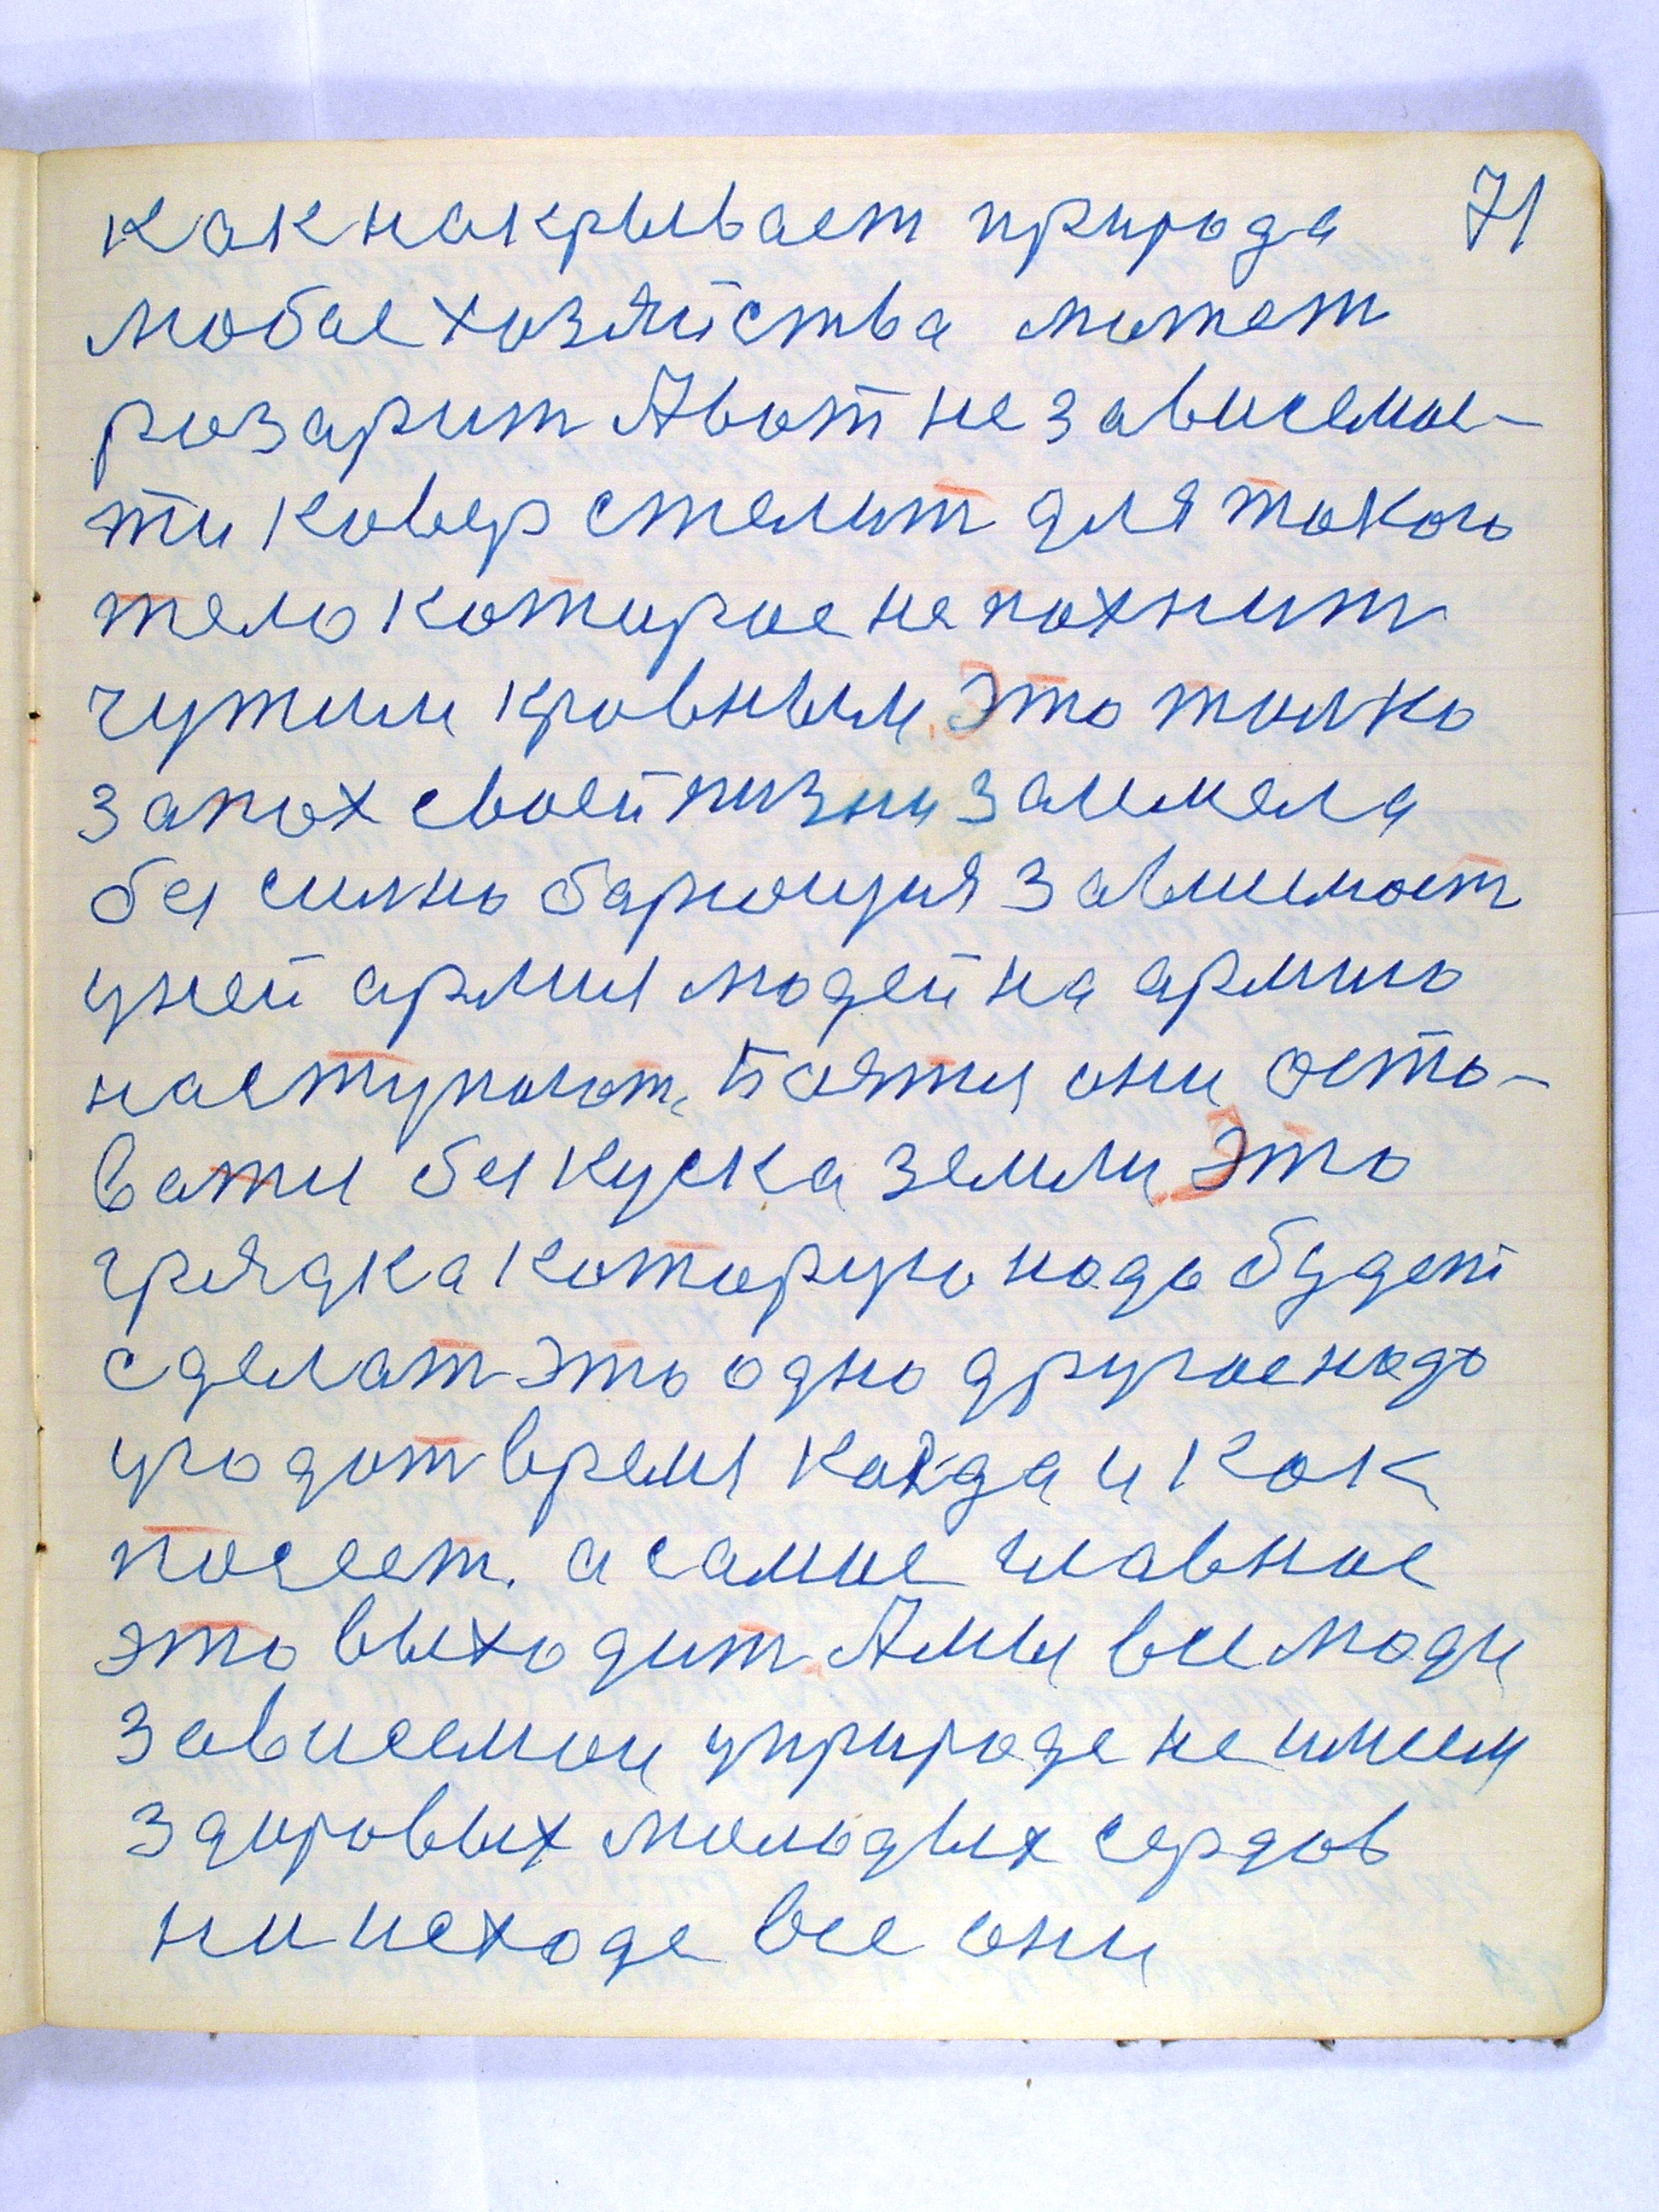 как накрывает природа 71
любое хозяйства может
розарит Авот не зависемос-
ти ковер стелит для токого
тело которое не похнит
чужим кровным. Это толко
запох своей жизни заимела
бы силно барющия зависимост
уней армия людей на армию
наступоют, Боятся они осто-
ватся без куска земли. Это
грядка которую надо будет
сделат это одно другое надо
угодот время когда и как
посеет. а самое главное
это выходит. Амы все люди
зависемои уприроде не имеем
здоровых молодых сердов
ни исходе все они